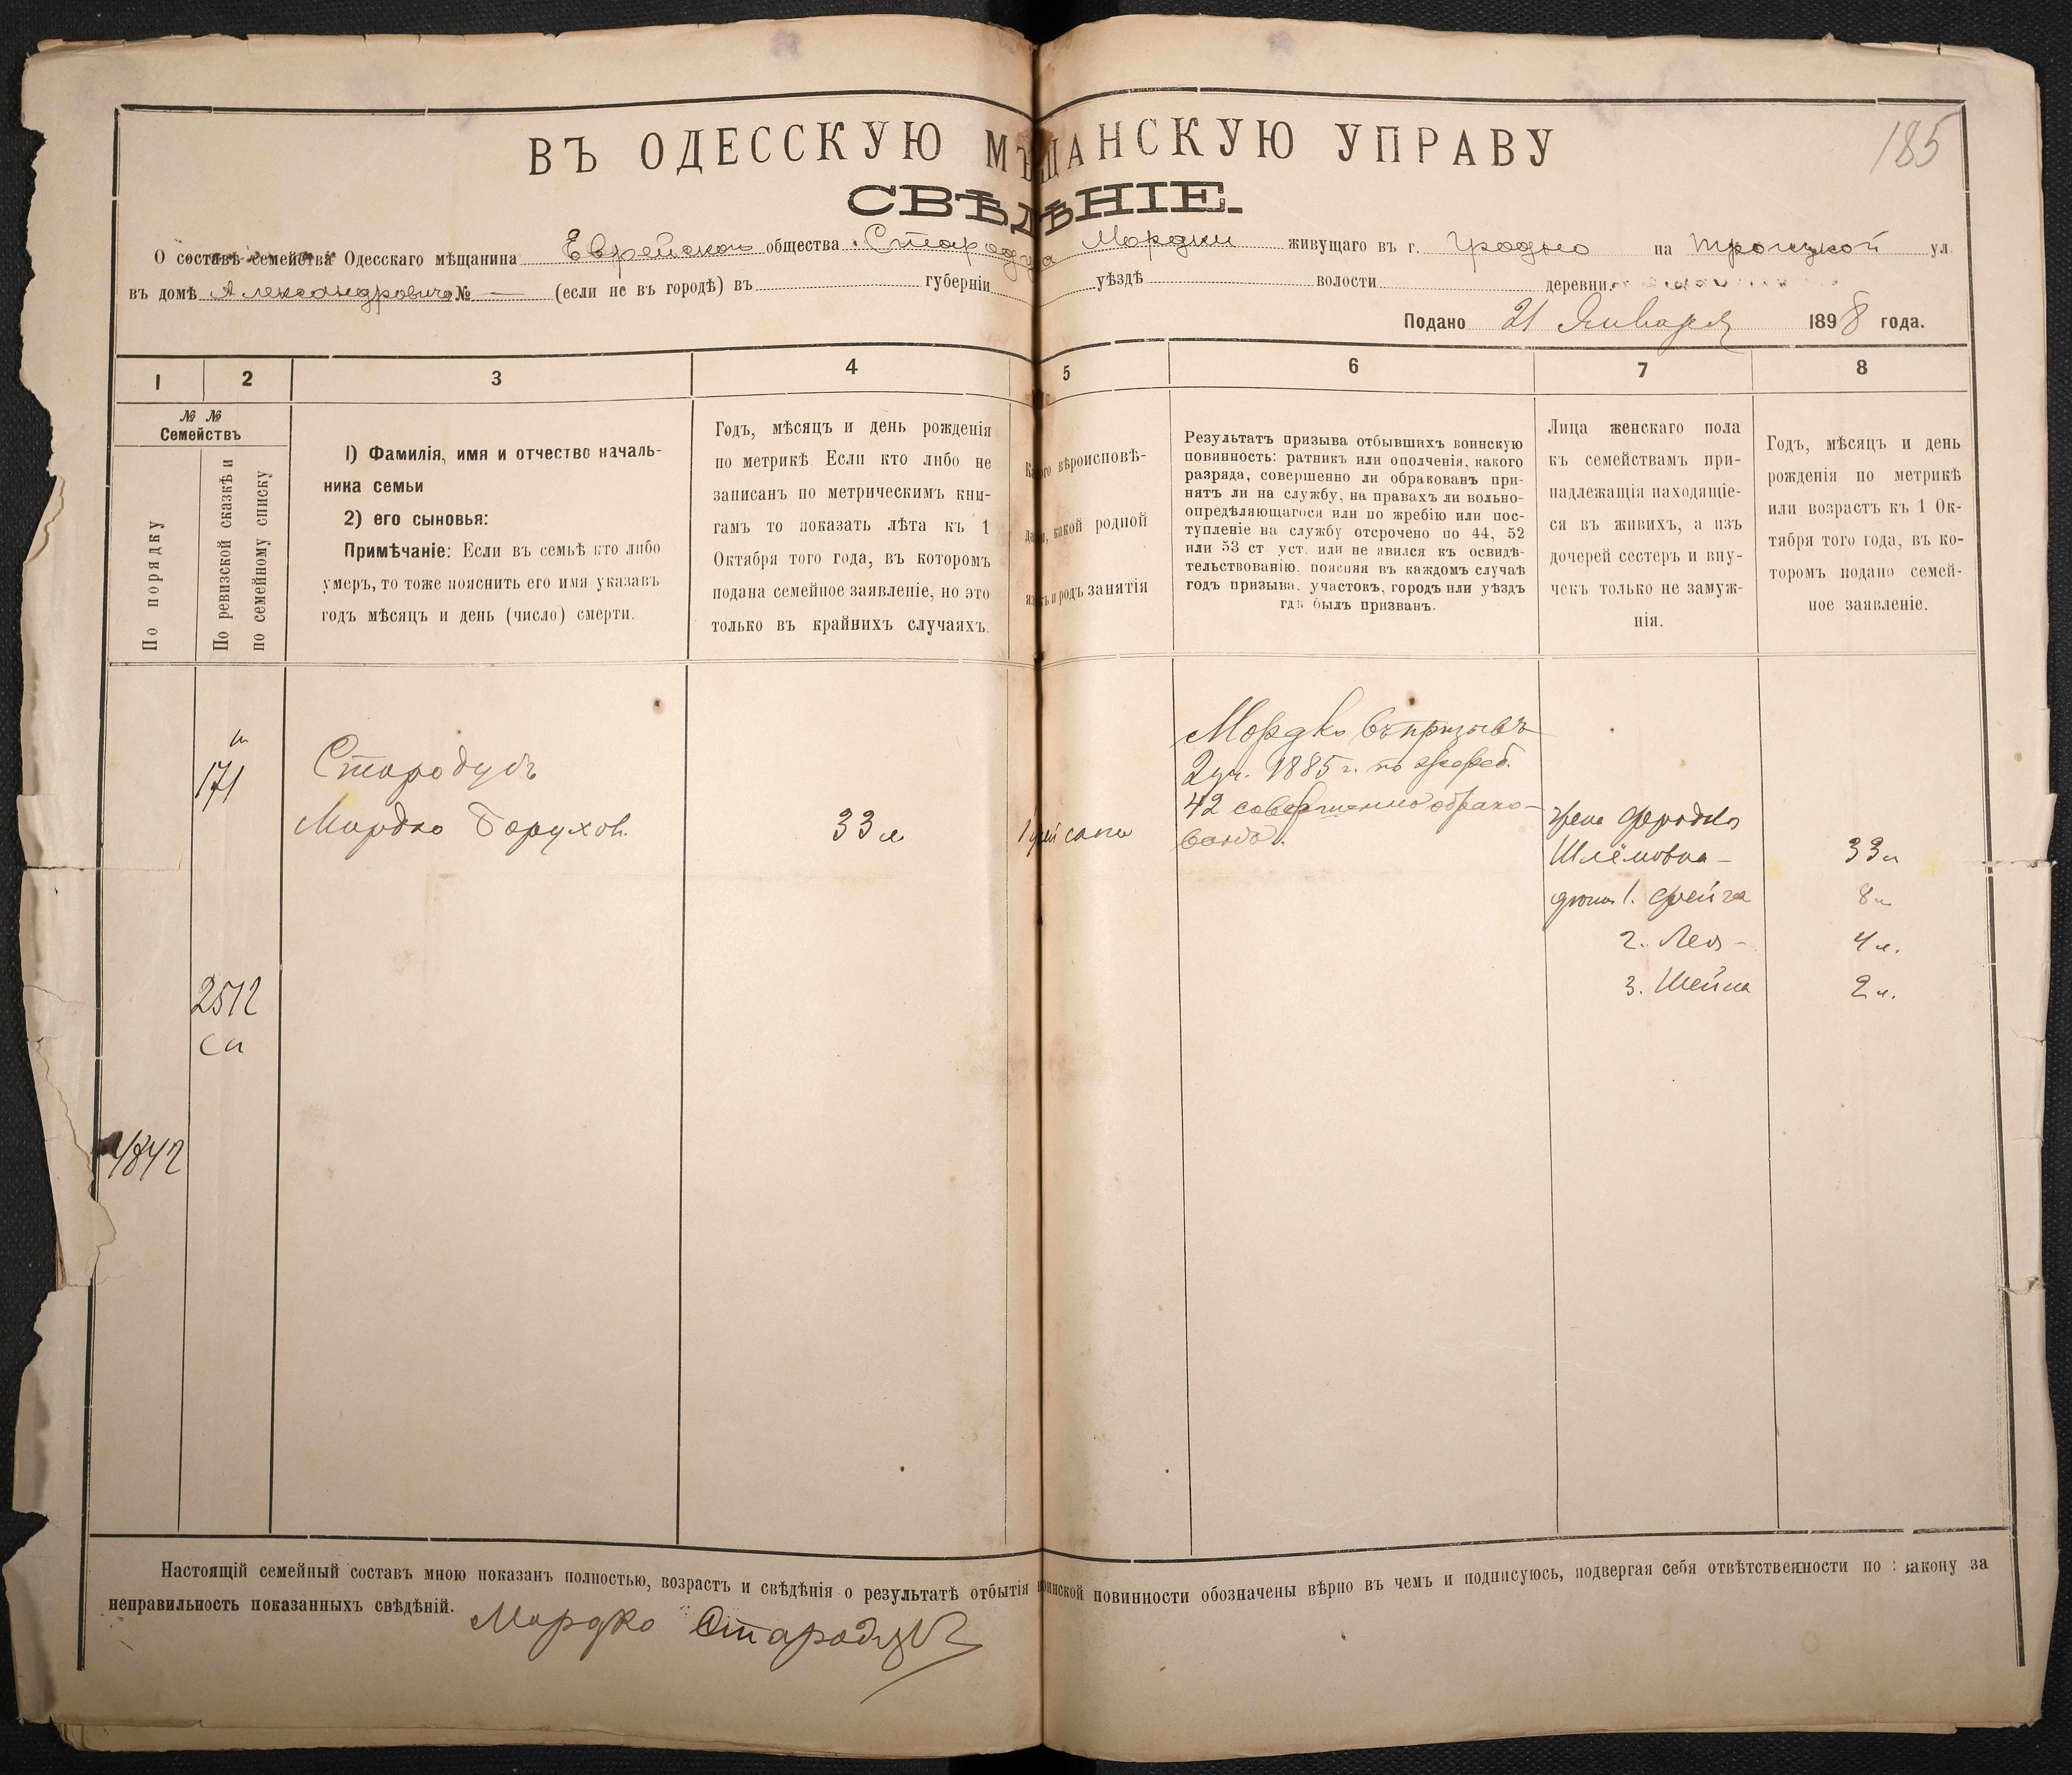 185
ВЪ ОДЕССКУЮ МѢЩАНСКУЮ УПРАВУ
СВѢДѢНІЕ.
О составѣ семейства Одесскаго мѣщанина Еврейскаго общества Стародуба Мордки живущаго въ г. Гродно на Троицкой ул.
въ домѣ Александровича № — (если не въ городѣ) въ губерніи уѣздѣ волости деревни
Подано 21 Января 1898 года.
1 2 3 4 5 6 7 8
№ №
Семействъ
По порядку
По ревизской сказкѣ и
по семейному списку
1) Фамилія, имя и отчество началь-
ника семьи
2) его сыновья:
Примѣчаніе: Если въ семьѣ кто либо
умеръ, то тоже пояснить его имя указавъ
годъ мѣсяцъ и день (число) смерти.
Годъ, мѣсяцъ и день рожденія
по метрикѣ. Если кто либо не
записанъ по метрическимъ кни-
гамъ то показать лѣта къ 1
Октября того года, въ которомъ
подана семейное заявленіе, но это
только въ крайнихъ случаяхъ.
Какого вѣроисповѣ-
данія, какой родной
языкъ и родъ занятія
Результатъ призыва отбывшихъ воинскую
повинность: ратникъ или ополченія, какого
разряда, совершенно ли обракованъ при-
нятъ ли на службу, на правахъ ли вольно-
опредѣляющагося или по жребію или пос-
тупленіе на службу отсрочено по 44, 52
или 53 ст уст. или не явился къ освидѣ-
тельствованію, поясняя въ каждомъ случаѣ
годъ призыва, участокъ, городъ или уѣздъ
гдѣ былъ призванъ.
Лица женскаго пола
къ семействамъ при-
надлежащія находящіе-
ся въ живихъ, а изъ
дочерей сестеръ и вну-
чекъ только не замуж-
нія.
Годъ, мѣсяцъ и день
рожденія по метрикѣ
или возрастъ къ 1 Ок-
тября того года, въ ко-
торомъ подано семей-
ное заявленіе.
171
Стародубъ
Мордко Борухов. 33 л
Мордко въ призывъ
2 уч. 1885 г. по жреб.
42 совершенно обрако-
ванъ.
жена
Шлёмовна — 33 л
дочи 1. Фейга 8 л
2. Лея — 4 л.
3. Шейна 2 л.
2512
4842
Настоящій семейный составъ мною показанъ полностью, возрастъ и свѣдѣнія о результатѣ отбытія воинской повинности обозначены вѣрно въ чемъ и подписуюсь, подвергая себя отвѣтственности по закону за
неправильность показанныхъ свѣдѣній. Мордко Стародубъ